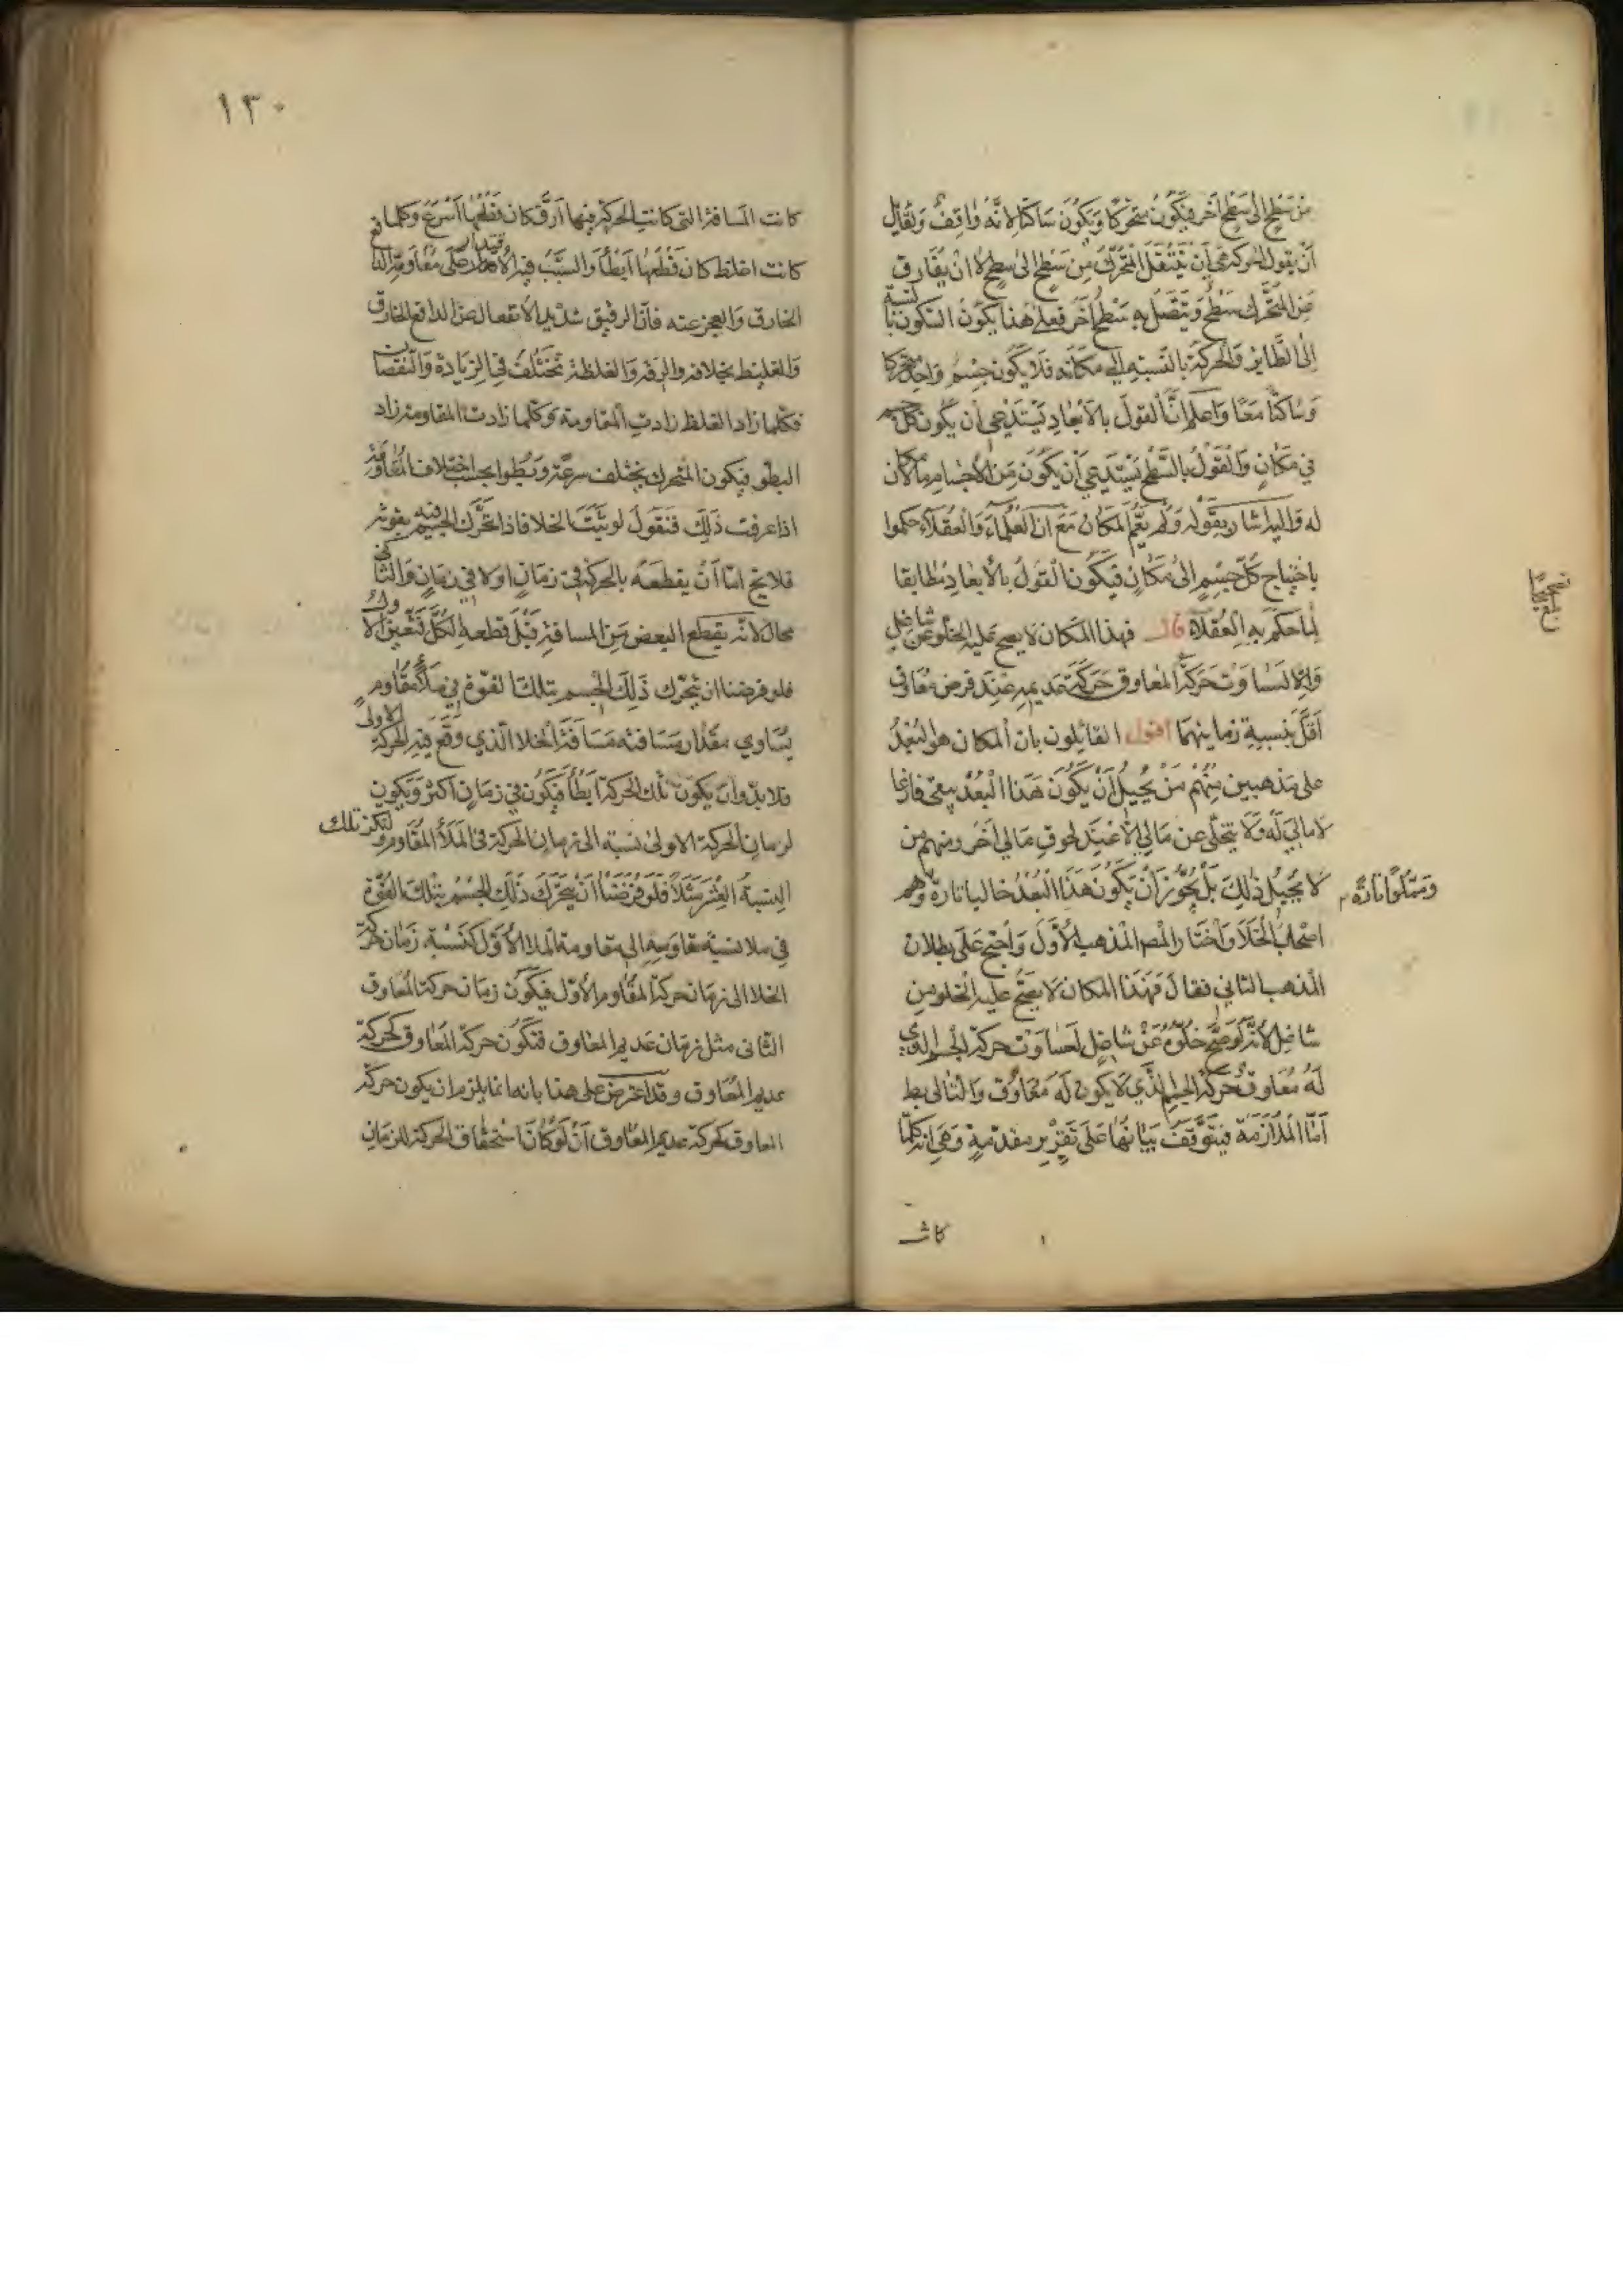 من سطح الى سطح اخر فيكون متحركا ويكون ساكنا لانه واقف ولقائل
ان يقول الحركة هي ان ينتقل المتحرك من سطح الى سطح لا ان يفارق
من المتحرك سطح ويتصل به سطح اخر فعلى هذا يكون السكون بالنسبة
الى الطاير والحركة بالنسبة الى مكانه فلا يكون جسم واحد متحركا
وساكنا معا واعلم ان القول بالابعاد يستدعي ان يكون كل جسم
في مكان والقول بالسطح يستدعي ان يكون من الاجسام ما لا مكان
له واليه اشار بقوله ولم يعم المكان مع ان العلماء والعقلاء حكموا
باحتياج كل جسم الى مكان فيكون القول بالابعاد مطابقا
لما حكم به العقلاء قال فهذا المكان لا يصح عليه الخلو عن شاغل
والا لتساوت حركة المعاوق حركة عديمه عند فرض معاوق
اقل بنسبة زمانيهما اقول القائلون بان المكان هو البعد
على مذهبين منهم من يحيل ان يكون هذا البعد يبقى فارغا
لا مالي له ولا يتخلى عن مالي الا عند لحوق مالي اخر ومنهم من
لا يحيل ذلك بل يجوز ان يكون هذا البعد خاليا تارة وهم
وممتلوا تارة
اصحاب الخلا واختار المص المذهب الاول واحتج على بطلان
المذهب الثاني فقال فهذا المكان لا يصح عليه الخلو من
شاغل لانه لو صح خلوه عن شاغل لتساوت حركة الجسم الذي
له معاوق حركة الجسم الذي لا يكون له معاوق والتالي بط
اما الملازمة فيتوقف بيانها على تقرير مقدمة وهي انه كلما
كانت
١٣٠
كانت المسافة التي كانت الحركة فيها ارق كان قطعها اسرع وكلما
كانت اغلظ كان قطعها ابطأ والسبب فيه الاقتدار على مقاومة الدافع
الخارق والعجز عنه فان الرقيق شديد الانفعال عن الدافع الخارق
والغليظ بخلافه والرقة والغلظة تختلف في الزيادة والنقصان
فكلما زاد الغلظ زادت المقاومة وكلما زادت المقاومة زاد
البطو فيكون المتحرك يختلف سرعة وبطوا بحسب اختلاف المقاومة
اذا عرفت ذلك فنقول لو ثبت الخلا فاذا تحرك الجسم فيه بقوته
فلا يخ اما ان يقطعه بالحركة في زمان او لا في زمان والثاني
محال لانه يقطع البعض من المسافة قبل قطعه لكل فتعين الاول
فلو فرضنا ان يتحرك ذلك الجسم بتلك القوة في ملأ مقاوم
يساوي مقدار مسافته مسافة الخلا الذي وقع فيه الحركة الاولى
فلا بد وان يكون تلك الحركة ابطأ فيكون في زمان اكثر ويكون
لزمان الحركة الاولى نسبة الى زمان الحركة في الملأ المقاوم ولتكن تلك
النسبة العشر مثلا فلو فرضنا ان يتحرك ذلك الجسم بتلك القوة
في ملا نسبة مقاومته الى مقاومة الملا الاول كنسبة زمان حركة
الخلا الى زمان حركة المقاوم الاول فيكون زمان حركة المعاوق
الثاني مثل زمان عديم المعاوق فتكون حركة المعاوق كحركة
عديم المعاوق وقد اعترض على هذا بانه انما يلزم ان يكون حركة
المعاوق كحركة عديم المعاوق ان لو كان استحقاق الحركة للزمان